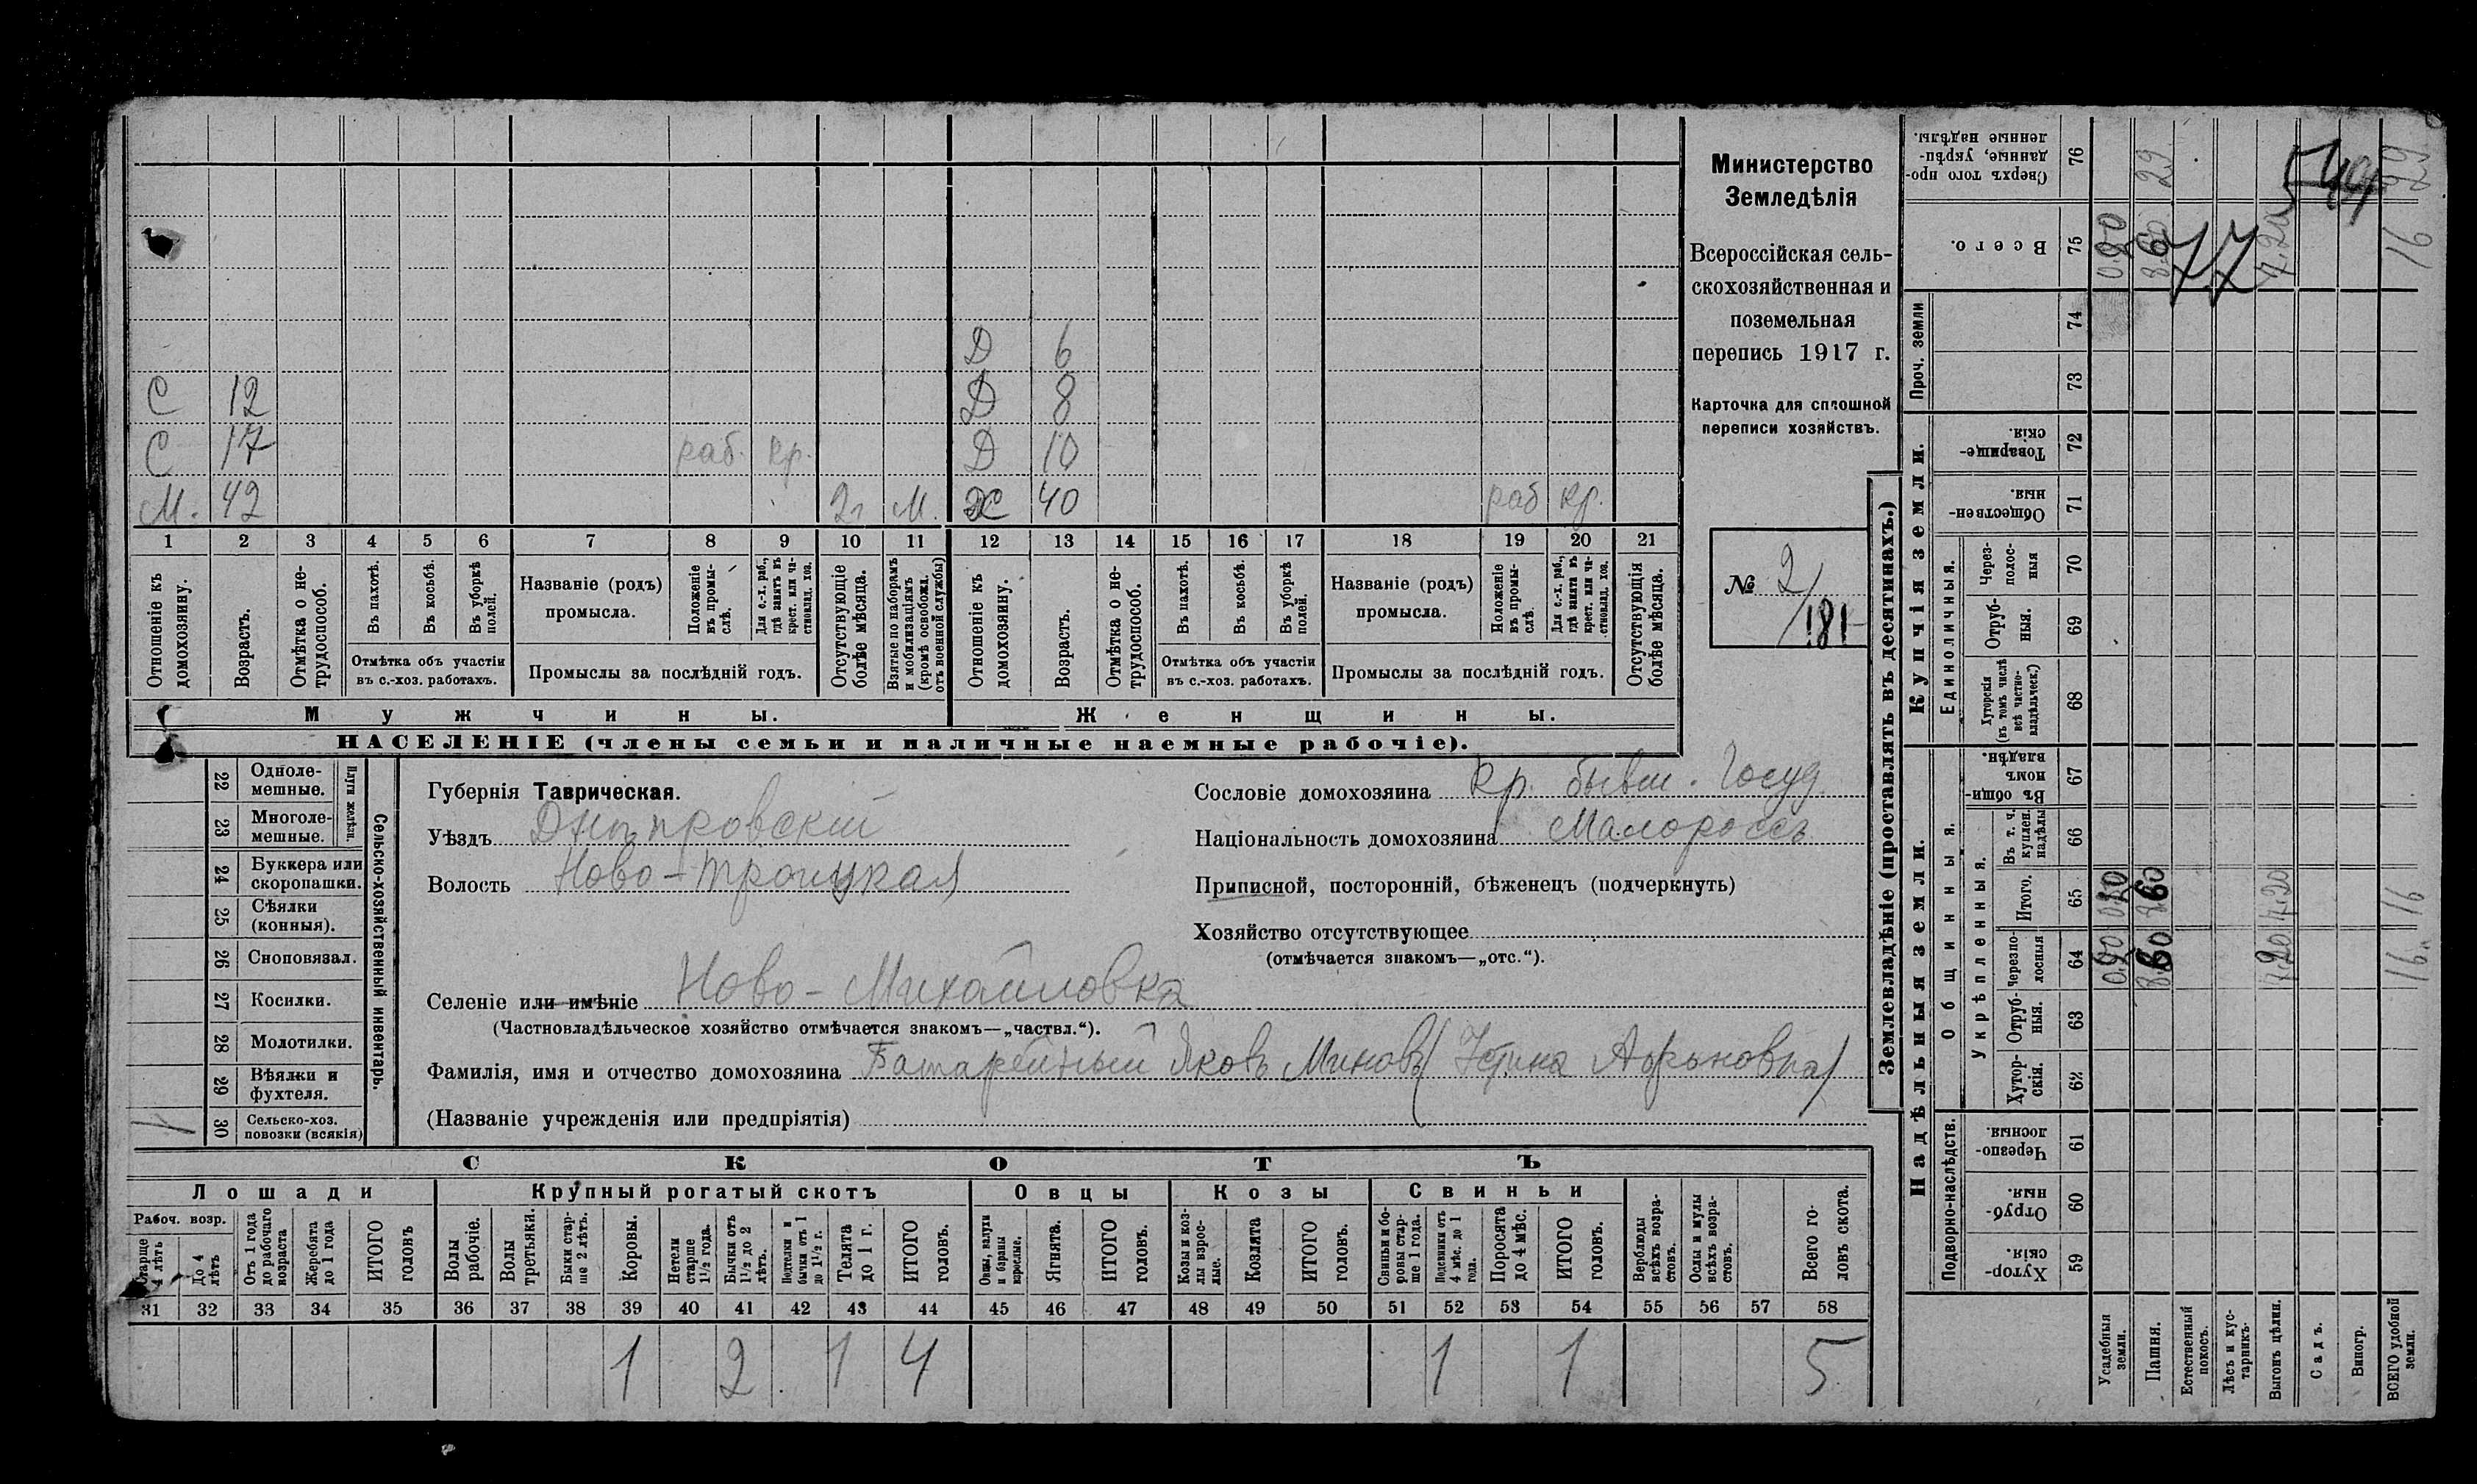 Министерство
Земледѣлія
Всероссійская сель-
скохозяйственная и
поземельная
перепись 1917 г.
Карточка для сплошной
переписи хозяйствъ.
№ 2/181
Д 6
С 12 Д 8
С 17 раб. кр. Д 10
М. 42 2г М. Ж 40 раб кр.
1 2 3 4 5 6 7 8 9 10 11 12 13 14 15 16 17 18 19 20 21
Отношеніе къ домохозяину.
Возрастъ.
Отмѣтка о не-трудоспособ.
Въ пахотѣ.
Въ косьбѣ.
Въ уборкѣ полей.
Отмѣтка объ участіи
въ с.-хоз. работахъ.
Названіе (родъ)
промысла.
Положеніе въ промы-слѣ.
Для с.-х. раб., гдѣ занятъ въ крест. или ча-стновлад. хоз.
Промыслы за послѣдній годъ.
Отсутствующіе болѣе мѣсяца.
Взятые по наборамъ и мобилизаціямъ (кромѣ освобожд. отъ военной службы)
Отношеніе къ домохозяину.
Возрастъ.
Отмѣтка о не-трудоспособ.
Въ пахотѣ.
Въ косьбѣ.
Въ уборкѣ полей.
Отмѣтка объ участіи
въ с.-хоз. работахъ.
Названіе (родъ)
промысла.
Положеніе въ промы-слѣ.
Для с.-х. раб., гдѣ занята въ крест. или ча-стновлад. хоз.
Промыслы за послѣдній годъ.
Отсутствующія болѣе мѣсяца.
Мужчины. Женщины.
НАСЕЛЕНІЕ (члены семьи и наличные наемные рабочіе).
Сельско-хозяйственный инвентарь.
Плуги желѣзн.
22 Одноле-мешные.
23 Многоле-мешные.
24 Буккера или скоропашки.
25 Сѣялки (конныя).
26 Сноповязал.
27 Косилки.
28 Молотилки.
29 Вѣялки и фухтеля.
30 Сельско-хоз. повозки (всякія)
Губернія Таврическая.
Уѣздъ Днѣпровскій
Волость Ново-Троицкая
Сословіе домохозяина Кр. бывш. Госуд.
Національность домохозяина Малороссъ
Приписной, посторонній, бѣженецъ (подчеркнуть)
Хозяйство отсутствующее
(отмѣчается знакомъ—„отс.“).
Селеніе или имѣніе Ново-Михайловка
(Частновладѣльческое хозяйство отмѣчается знакомъ—„частвл.“).
Фамилія, имя и отчество домохозяина Батарейный Яковъ Миновъ
(Названіе учрежденія или предпріятія)
СКОТЪ
Лошади Крупный рогатый скотъ Овцы Козы Свиньи
Рабоч. возр.
Старше 4 лѣтъ
До 4 лѣтъ
Отъ 1 года до рабочаго возраста
Жеребята до 1 года
ИТОГО головъ
Волы рабочіе.
Волы третьяки.
Быки стар-ше 2 лѣтъ.
Коровы.
Нетели старше 1½ года.
Бычки отъ 1½ до 2 лѣтъ.
Нетелки и бычки отъ 1 до 1½ г.
Телята до 1 г.
ИТОГО головъ.
Овцы, валухи и бараны взрослые.
Ягнята.
ИТОГО головъ.
Козы и коз-лы взрос-лые.
Козлята
ИТОГО головъ.
Свиньи и бо-ровы стар-ше 1 года.
Подсвинки отъ 4 мѣс. до 1 года.
Поросята до 4 мѣс.
ИТОГО головъ.
Верблюды всѣхъ возра-стовъ.
Ослы и мулы всѣхъ возра-стовъ.
Всего го-ловъ скота.
31 32 33 34 35 36 37 38 39 40 41 42 43 44 45 46 47 48 49 50 51 52 53 54 55 56 57 58
1 2 1 4 1 1 5
Землевладѣніе (проставлять въ десятинахъ.)
Надѣльныя земли. Купчія земли. Проч. земли
Подворно-наслѣдств. Общинныя. Единоличныя.
Укрѣпленныя.
59 Хутор-скія.
60 Отруб-ныя.
61 Черезпо-лосныя.
62 Хутор-скія.
63 Отруб-ныя.
64 Черезпо-лосныя
65 Итого.
66 Въ т. ч. куплен. надѣлы
67 Въ общин-номъ владѣн.
68 Хуторскія (въ томъ числѣ всѣ частно-владѣльческ.)
69 Отруб-ныя.
70 Через-полос-ныя
71 Обществен-ныя.
72 Товарище-скія.
73
74
75 Всего.
76 Сверхъ того про-данные, укрѣп-ленные надѣлы.
Усадебныя земли.
Пашня.
Естественный покосъ.
Лѣсъ и кус-тарникъ.
Выгонъ цѣлин.
Садъ.
Виногр.
ВСЕГО удобной земли.
7.20
16
29
77